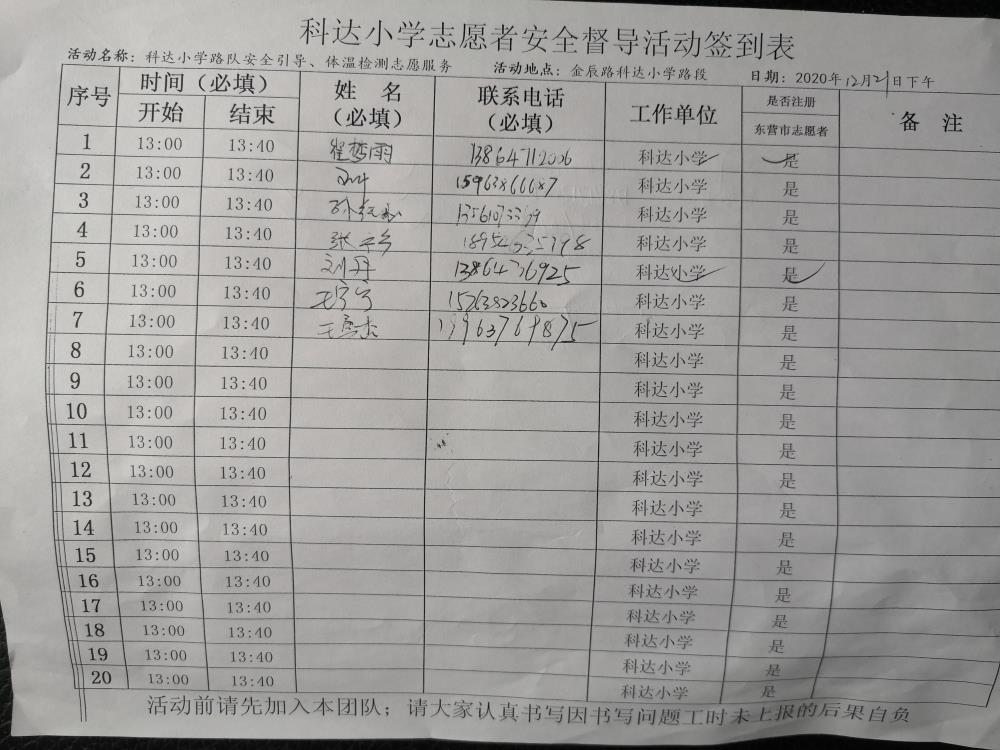 科达小学志愿者安全督导活动签到表
活动名称：科达小学路队安全引导、体温检测志愿服务 活动地点：金辰路科达小学路段 日期：2020年12月21日下午
序号 时间（必填） 姓 名（必填） 联系电话（必填） 工作单位 是否注册东营市志愿者 备 注
开始 结束
1 13:00 13:40 翟梦雨 13864711006 科达小学 是
2 13:00 13:40 15963866687 科达小学 是
3 13:00 13:40 科达小学 是
4 13:00 13:40 科达小学 是
5 13:00 13:40 刘丹 13864736925 科达小学 是
6 13:00 13:40 15263823660 科达小学 是
7 13:00 13:40 科达小学 是
8 13:00 13:40 科达小学 是
9 13:00 13:40 科达小学 是
10 13:00 13:40 科达小学 是
11 13:00 13:40 科达小学 是
12 13:00 13:40 科达小学 是
13 13:00 13:40 科达小学 是
14 13:00 13:40 科达小学 是
15 13:00 13:40 科达小学 是
16 13:00 13:40 科达小学 是
17 13:00 13:40 科达小学 是
18 13:00 13:40 科达小学 是
19 13:00 13:40 科达小学 是
20 13:00 13:40 科达小学 是
活动前请先加入本团队；请大家认真书写因书写问题工时未上报的后果自负